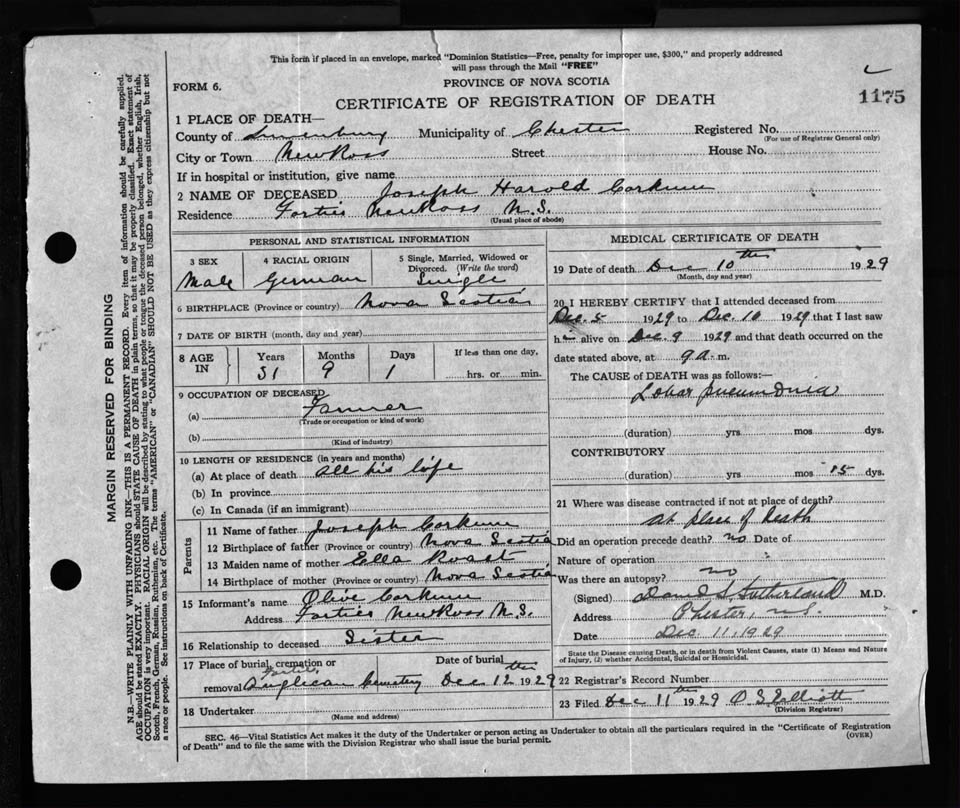 This form if placed in an envelope, marked "Dominion Statistics—Free, penalty for improper use, $300," and properly addressed
will pass through the Mail "FREE"
FORM 6.
PROVINCE OF NOVA SCOTIA
CERTIFICATE OF REGISTRATION OF DEATH
1175
1 PLACE OF DEATH—
County of Lunenburg Municipality of Chester Registered No.
(For use of Registrar General only)
City or Town New Ross Street House No.
If in hospital or institution, give name
2 NAME OF DECEASED Joseph Harold Corkum
Residence Forties New Ross N.S.
(Usual place of abode)
PERSONAL AND STATISTICAL INFORMATION
3 SEX
Male
4 RACIAL ORIGIN
German
5 Single, Married, Widowed or
Divorced. (Write the word)
Single
6 BIRTHPLACE (Province or country) Nova Scotia
7 DATE OF BIRTH (month, day and year)
8 AGE
IN
Years Months Days If less than one day,
31 9 1 hrs. or min.
9 OCCUPATION OF DECEASED
(a) Farmer
(Trade or occupation or kind of work)
(b)
(Kind of industry)
10 LENGTH OF RESIDENCE (in years and months)
(a) At place of death all his life
(b) In province
(c) In Canada (if an immigrant)
Parents
11 Name of father Joseph Corkum
12 Birthplace of father (Province or country) Nova Scotia
13 Maiden name of mother Ella Roast
14 Birthplace of mother (Province or country) Nova Scotia
15 Informant's name Olive Corkum
Address Forties New Ross N.S.
16 Relationship to deceased Sister
17 Place of burial, cremation or Date of burial
Forties
removal Anglican Cemetery Dec 12th 1929
18 Undertaker
(Name and address)
MEDICAL CERTIFICATE OF DEATH
19 Date of death Dec 10th 1929
(Month, day and year)
20 I HEREBY CERTIFY that I attended deceased from
Dec. 5 1929 to Dec. 10 1929 that I last saw
him alive on Dec. 9 1929 and that death occurred on the
date stated above, at 9 a. m.
The CAUSE of DEATH was as follows:—
Lobar pneumonia
(duration) yrs mos dys.
CONTRIBUTORY
(duration) yrs mos dys.
21 Where was disease contracted if not at place of death?
at place of death
Did an operation precede death? no Date of
Nature of operation
Was there an autopsy? no
(Signed) Daniel S. Sutherland M.D.
Address Chester, N.S.
Date Dec 11, 1929
State the Disease causing Death, or in death from Violent Causes, state (1) Means and Nature
of Injury, (2) whether Accidental, Suicidal or Homicidal.
22 Registrar's Record Number
23 Filed Dec 11th 1929 O S Elliott
(Division Registrar)
SEC. 46—Vital Statistics Act makes it the duty of the Undertaker or person acting as Undertaker to obtain all the particulars required in the "Certificate of Registration
of Death" and to file the same with the Division Registrar who shall issue the burial permit.
(OVER)
MARGIN RESERVED FOR BINDING
N.B.—WRITE PLAINLY WITH UNFADING INK—THIS IS A PERMANENT RECORD. Every item of information should be carefully supplied.
AGE should be stated EXACTLY. PHYSICIANS should STATE CAUSE OF DEATH in plain terms, so that it may be properly classified. Exact statement of
OCCUPATION is very important. RACIAL ORIGIN will be described by stating to what people or tongue the deceased person belonged, whether English, Irish,
Scotch, French, German, Russian, Ruthenian, etc. The terms "AMERICAN" or "CANADIAN" SHOULD NOT BE USED as they express citizenship but not
a race or people. See instructions on back of Certificate.